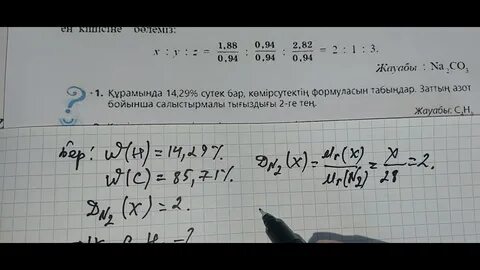 ең кішісіне бөлеміз:
x : y : z = 1,88/0,94 : 0,94/0,94 : 2,82/0,94 = 2 : 1 : 3.
Жауабы: Na₂CO₃
•1. Құрамында 14,29% сутек бар, көмірсутектің формуласын табыңдар. Заттың азот
бойынша салыстырмалы тығыздығы 2-ге тең.
Жауабы: C₄H₈
Бер: W(H) = 14,29%.
W(C) = 85,71%.
D_N₂(X) = 2.
D_N₂(X) = Mr(X)/Mr(N₂) = X/28 = 2.